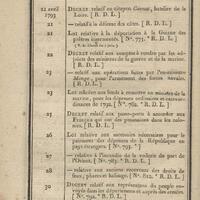 21 avril 1793
DÉCRET relatif au citoyen Guirand, huissier de la
Loire. [ R. D. L. ]
— relatif à la défense des côtes. [ R. D. L. ]
LOI relative à la déportation à la Guiane des
prêtres insermentés. [ Nº. 775. * R. D. L. ]
DÉCRET relatif aux comptes à rendre par les ad-
joints des ministres de la guerre et de la marine.
[ R. D. L. ]
23
— relatif aux opérations faites par l'
Monge, pour l'armement des forces navales.
[ R. D. L. ]
23
LOI relative aux fonds à remettre au ministre de la
marine, pour les dépenses ordinaires et extraor-
dinaires de 1792. [ Nº. * R. D. L. ]
25
DÉCRET relatif aux passe-ports à accorder aux
qui ont des possessions dans les co-
lonies. [ R. D. L. ]
26
LOI relative aux sommes nécessaires pour le
paiement des dépenses de la République en
pays étrangers. [ Nº. * R. D. L. ]
27
— relative à l'incendie de la voilerie du port de
l'Orient. [ Nº. * R. D. L. ]
28
— relative aux anciens receveurs des droits de
feux, phares et balisage. [ Nº. * R. D. L. ]
30
DÉCRET relatif aux représentans du peuple en-
voyés dans les départemens et auprès des armées.
[ Nº. * R. D. L. ]